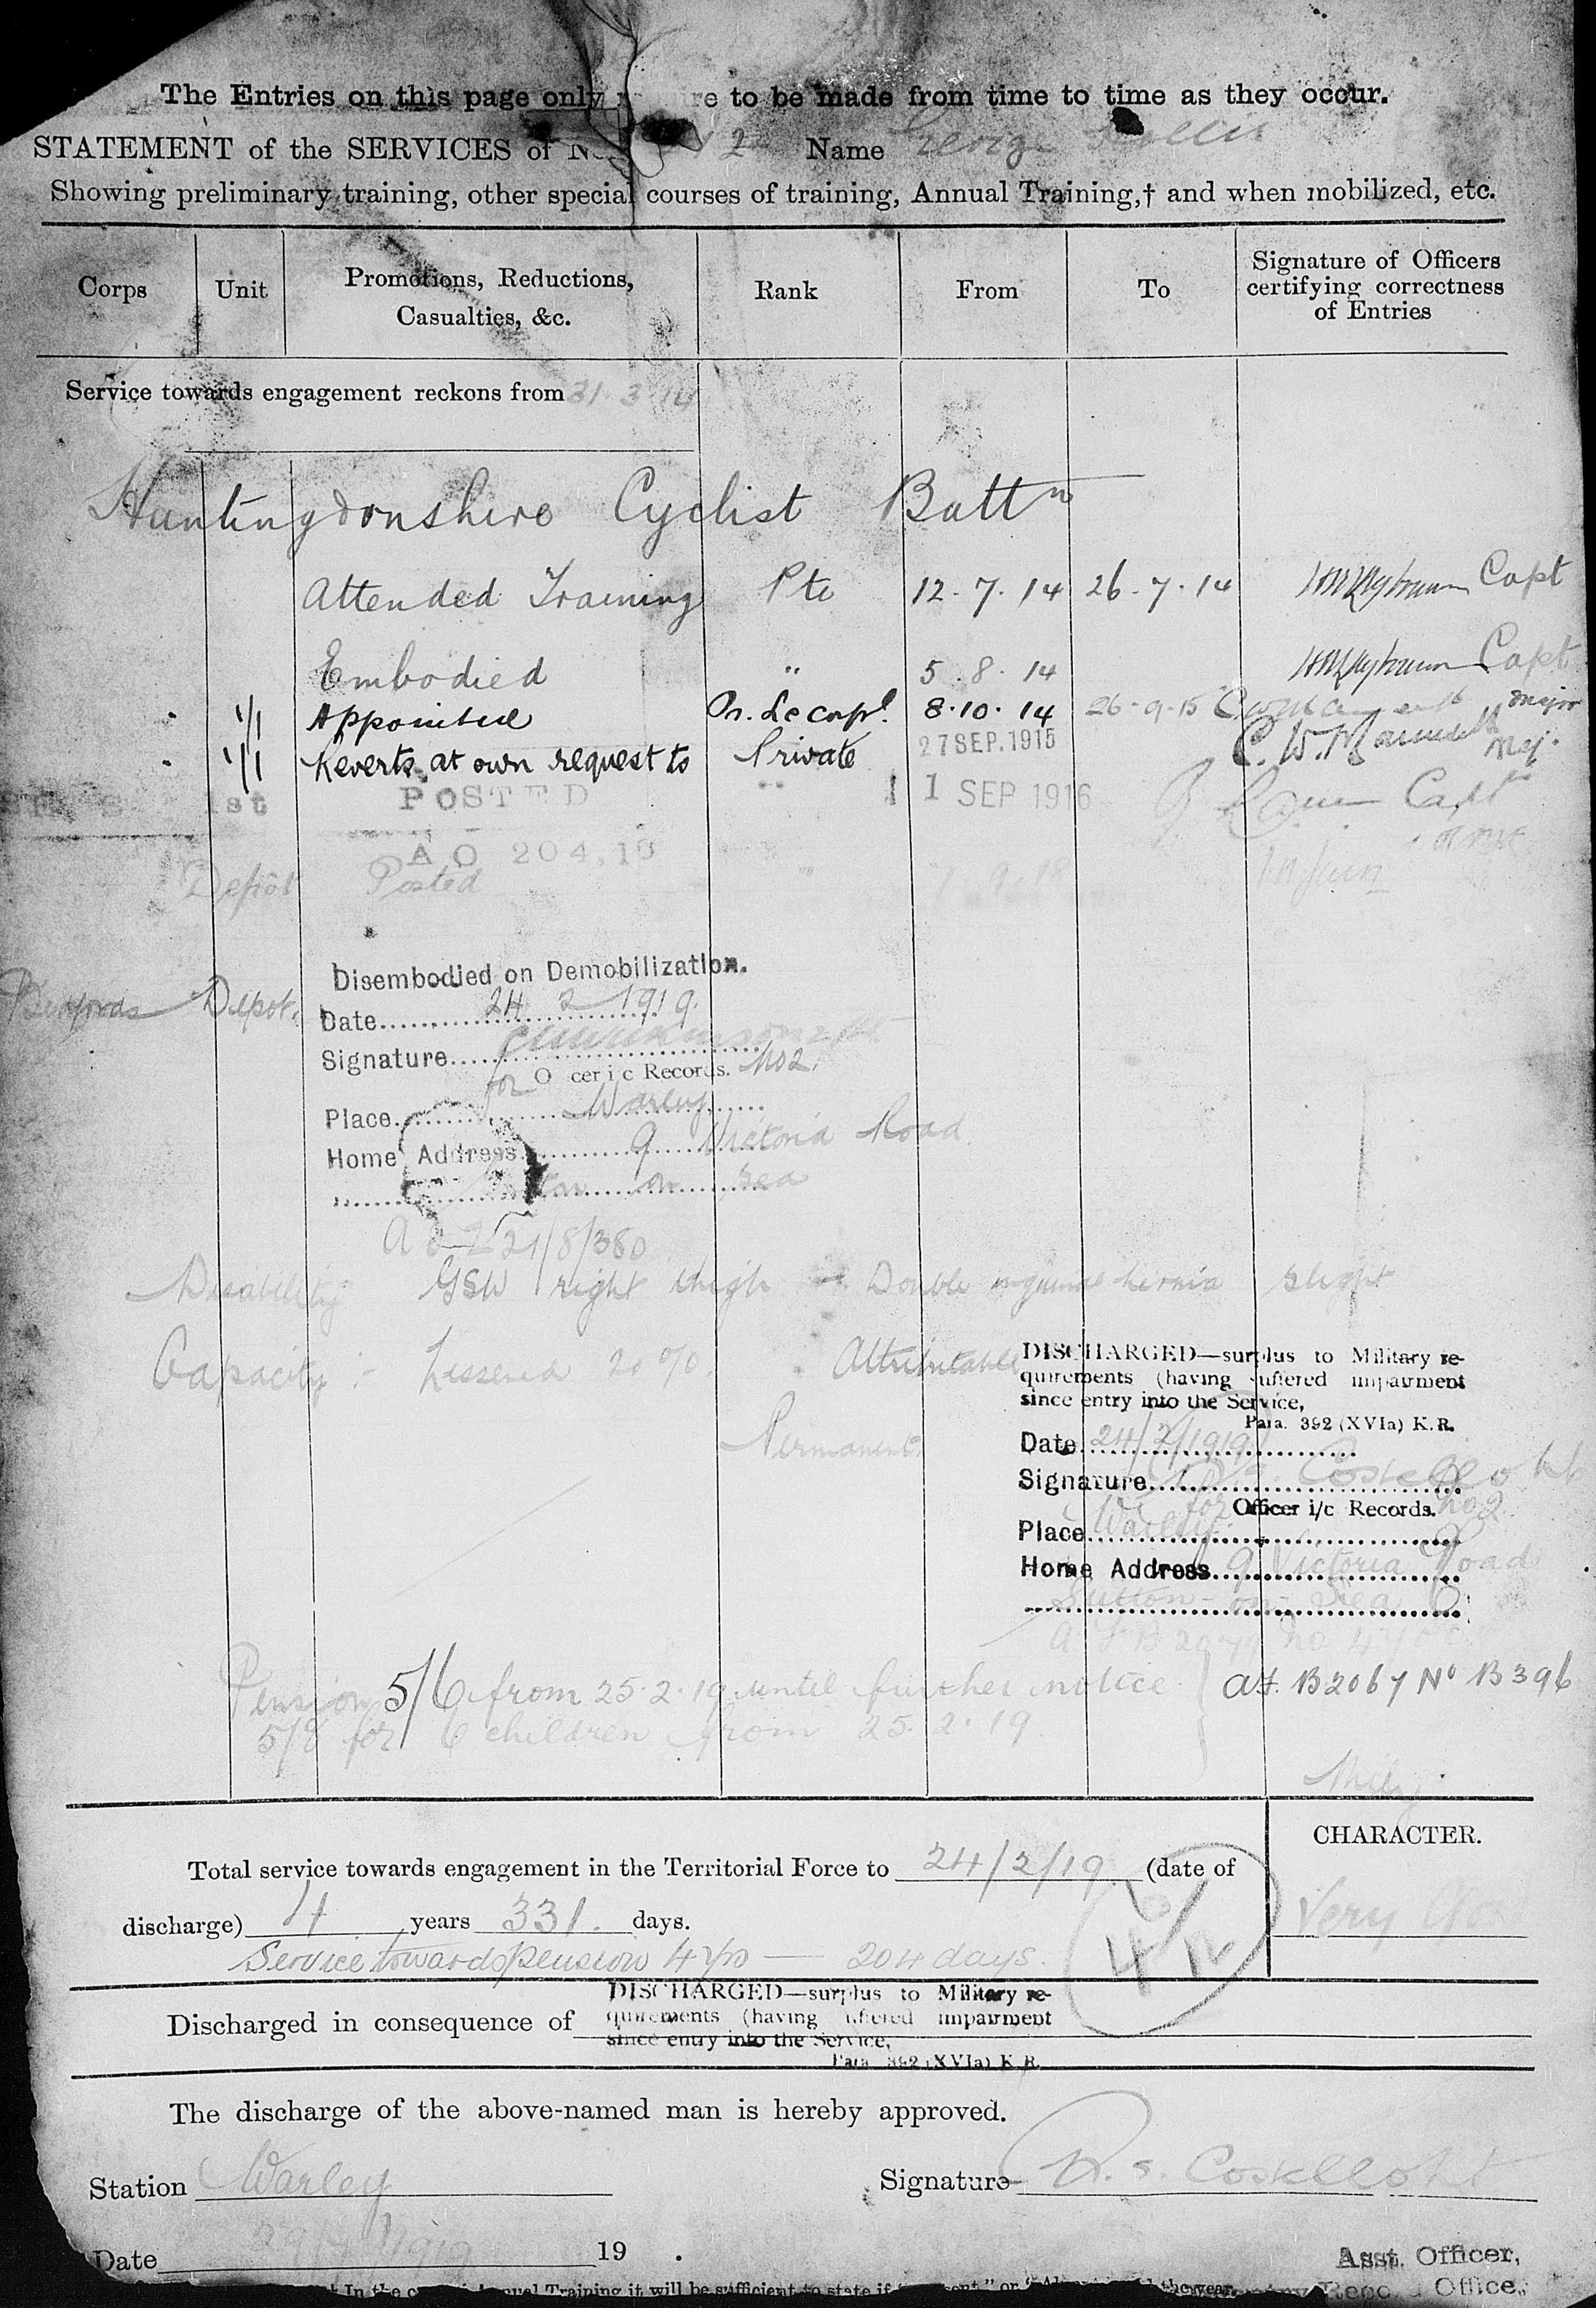 The Entries on this page only are to be made from time to time as they occur.
STATEMENT of the SERVICES of No. 2 Name George
Showing preliminary training, other special courses of training, Annual Training,† and when mobilized, etc.
Corps Unit Promotions, Reductions, Casualties, &c. Rank From To Signature of Officers certifying correctness of Entries
Service towards engagement reckons from 31.3.14
Huntingdonshire Cyclist Battn
Attended Training Pte 12.7.14 26.7.14 Capt
Embodied " 5.8.14 Capt
1/1 Appointed Lce corpl. 8.10.14 26.9.15 Major
1/1 Reverts at own request to Private 27 SEP. 1915 C. W. Maj.
1st POSTED " 1 SEP 1916 Capt
AO 204.16
Depôt Posted "
Disembodied on Demobilization.
Bedfords Depot. Date 24 2 1919.
Signature
for O cer i c Records. No 2.
Place Warley
Home Address 9 Victoria Road
on Sea
21/8/380
Disability: GSW right thigh - Double inguinal hernia slight
Capacity :- Lessened 20%. Attributable
Permanent.
DISCHARGED—surplus to Military re-
quirements (having suffered impairment
since entry into the Service,
Para. 392 (XVIa) K.R.
Date 24/2/1919
Signature Costello Lt
for Officer i/c Records. No 2.
Place Warley
Home Address 9 Victoria Road
Sutton-on-Sea
Pension 5/6 from 25.2.19 until further notice A.F. B2067 No B396
5/8 for 6 children from 25.2.19.
Mily
CHARACTER.
Total service towards engagement in the Territorial Force to 24/2/19 (date of
discharge) 4 years 331. days.
Very Good
Service towards pension 4 yrs — 204 days.
Discharged in consequence of DISCHARGED—surplus to Military re-
quirements (having suffered impairment
since entry into the Service,
Para. 392 (XVIa) K.R.
The discharge of the above-named man is hereby approved.
Station Warley Signature R. S. Costello Lt
Date 1919 19 .
Asst. Officer,
Office.
Annual Training it will be sufficient to state if